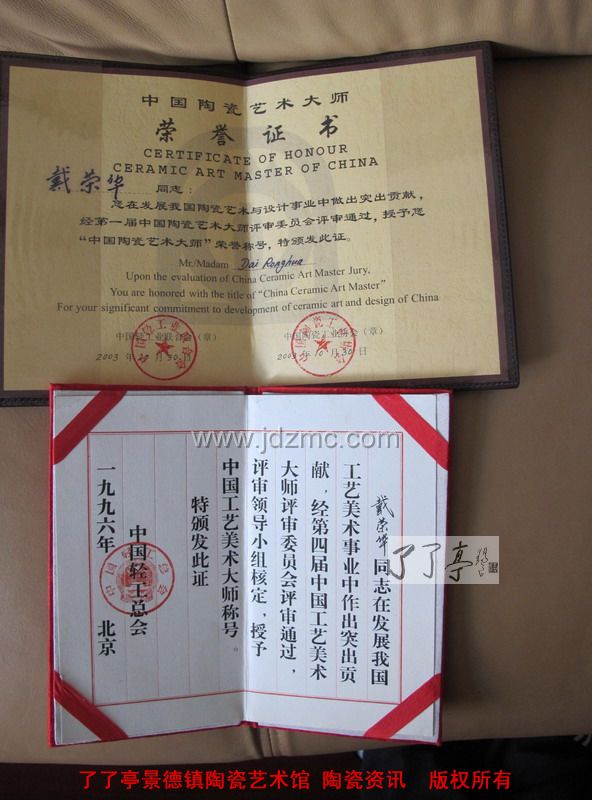 中国陶瓷艺术大师
荣誉证书
CERTIFICATE OF HONOUR
CERAMIC ART MASTER OF CHINA
戴荣华 同志：
您在发展我国陶瓷艺术与设计事业中做出突出贡献，
经第一届中国陶瓷艺术大师评审委员会评审通过，授予您
“中国陶瓷艺术大师”荣誉称号，特颁发此证。
Mr./Madam Dai Ronghua
Upon the evaluation of China Ceramic Art Master Jury,
You are honored with the title of “China Ceramic Art Master”
For your significant commitment to development of ceramic art and design of China
中国轻工业联合会（章） 中国陶瓷工业协会（章）
2003 年 10 月 30 日 2003 年 10 月 30 日
www.jdzmc.com
戴荣华同志在发展我国
工艺美术事业中作出突出贡
献，经第四届中国工艺美术
大师评审委员会评审通过，
评审领导小组核定，授予
中国工艺美术大师称号。
特颁发此证
中国轻工总会
一九九六年 北京
了了亭
了了亭景德镇陶瓷艺术馆 陶瓷资讯 版权所有